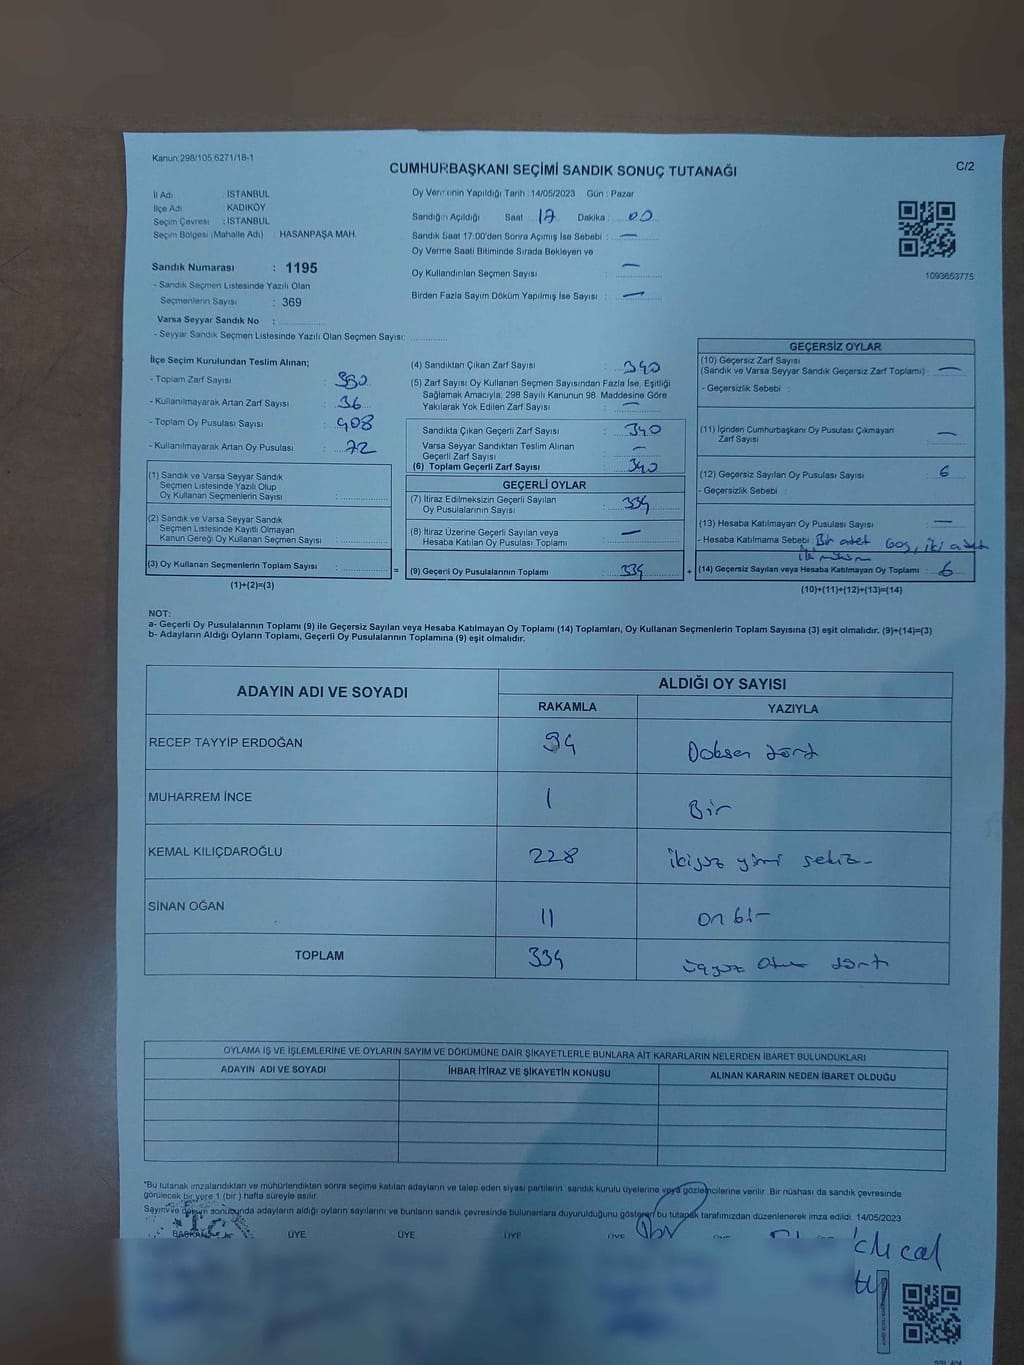 Kanun:298/105,6271/18-1
CUMHURBAŞKANI SEÇİMİ SANDIK SONUÇ TUTANAĞI
C/2
İl Adı : İSTANBUL
İlçe Adı : KADIKÖY
Seçim Çevresi : İSTANBUL
Seçim Bölgesi (Mahalle Adı) : HASANPAŞA MAH.
Sandık Numarası : 1195
- Sandık Seçmen Listesinde Yazılı Olan
Seçmenlerin Sayısı : 369
Varsa Seyyar Sandık No :
- Seyyar Sandık Seçmen Listesinde Yazılı Olan Seçmen Sayısı:
Oy Vermenin Yapıldığı Tarih : 14/05/2023 Gün : Pazar
Sandığın Açıldığı Saat 17 Dakika : 00
Sandık Saat 17:00'den Sonra Açımış İse Sebebi : —
Oy Verme Saati Bitiminde Sırada Bekleyen ve
Oy Kullandırılan Seçmen Sayısı : —
Birden Fazla Sayım Döküm Yapılmış İse Sayısı : —
1093653775
İlçe Seçim Kurulundan Teslim Alınan;
- Toplam Zarf Sayısı : 380
- Kullanılmayarak Artan Zarf Sayısı : 36
- Toplam Oy Pusulası Sayısı : 408
- Kullanılmayarak Artan Oy Pusulası : 72
(1) Sandık ve Varsa Seyyar Sandık
Seçmen Listesinde Yazılı Olup
Oy Kullanan Seçmenlerin Sayısı :
(2) Sandık ve Varsa Seyyar Sandık
Seçmen Listesinde Kayıtlı Olmayan
Kanun Gereği Oy Kullanan Seçmen Sayısı :
(3) Oy Kullanan Seçmenlerin Toplam Sayısı : =
(1)+(2)=(3)
(4) Sandıktan Çıkan Zarf Sayısı : 340
(5) Zarf Sayısı Oy Kullanan Seçmen Sayısından Fazla İse, Eşitliği
Sağlamak Amacıyla; 298 Sayılı Kanunun 98. Maddesine Göre
Yakılarak Yok Edilen Zarf Sayısı : —
Sandıkta Çıkan Geçerli Zarf Sayısı : 340
Varsa Seyyar Sandıktan Teslim Alınan
Geçerli Zarf Sayısı : —
(6) Toplam Geçerli Zarf Sayısı : 340
GEÇERLİ OYLAR
(7) İtiraz Edilmeksizin Geçerli Sayılan
Oy Pusulalarının Sayısı : 334
(8) İtiraz Üzerine Geçerli Sayılan veya
Hesaba Katılan Oy Pusulası Toplamı : —
(9) Geçerli Oy Pusulalarının Toplamı : 334 +
GEÇERSİZ OYLAR
(10) Geçersiz Zarf Sayısı
(Sandık ve Varsa Seyyar Sandık Geçersiz Zarf Toplamı) : —
- Geçersizlik Sebebi :
(11) İçinden Cumhurbaşkanı Oy Pusulası Çıkmayan
Zarf Sayısı : —
(12) Geçersiz Sayılan Oy Pusulası Sayısı : 6
- Geçersizlik Sebebi :
(13) Hesaba Katılmayan Oy Pusulası Sayısı : —
- Hesaba Katılmama Sebebi : Bir adet boş, iki adet
iki mühür
(14) Geçersiz Sayılan veya Hesaba Katılmayan Oy Toplamı : 6
(10)+(11)+(12)+(13)=(14)
NOT:
a- Geçerli Oy Pusulalarının Toplamı (9) ile Geçersiz Sayılan veya Hesaba Katılmayan Oy Toplamı (14) Toplamları, Oy Kullanan Seçmenlerin Toplam Sayısına (3) eşit olmalıdır. (9)+(14)=(3)
b- Adayların Aldığı Oyların Toplamı, Geçerli Oy Pusulalarının Toplamına (9) eşit olmalıdır.
ADAYIN ADI VE SOYADI
ALDIĞI OY SAYISI
RAKAMLA YAZIYLA
RECEP TAYYİP ERDOĞAN 94 Doksan dört
MUHARREM İNCE 1 Bir
KEMAL KILIÇDAROĞLU 228 ikiyüz yirmi sekiz
SİNAN OĞAN 11 on bir
TOPLAM 334 üçyüz otuz dört
OYLAMA İŞ VE İŞLEMLERİNE VE OYLARIN SAYIM VE DÖKÜMÜNE DAİR ŞİKAYETLERLE BUNLARA AİT KARARLARIN NELERDEN İBARET BULUNDUKLARI
ADAYIN ADI VE SOYADI İHBAR İTİRAZ VE ŞİKAYETİN KONUSU ALINAN KARARIN NEDEN İBARET OLDUĞU
"Bu tutanak imzalandıktan ve mühürlendikten sonra seçime katılan adayların ve talep eden siyasi partilerin sandık kurulu üyelerine veya gözlemcilerine verilir. Bir nüshası da sandık çevresinde
görülecek bir yere 1 (bir ) hafta süreyle asılır.
Sayım ve döküm sonucunda adayların aldığı oyların sayılarını ve bunların sandık çevresinde bulunanlara duyurulduğunu gösteren bu tutanak tarafımızdan düzenlenerek imza edildi. 14/05/2023
T.C.
BAŞKAN ÜYE ÜYE ÜYE ÜYE